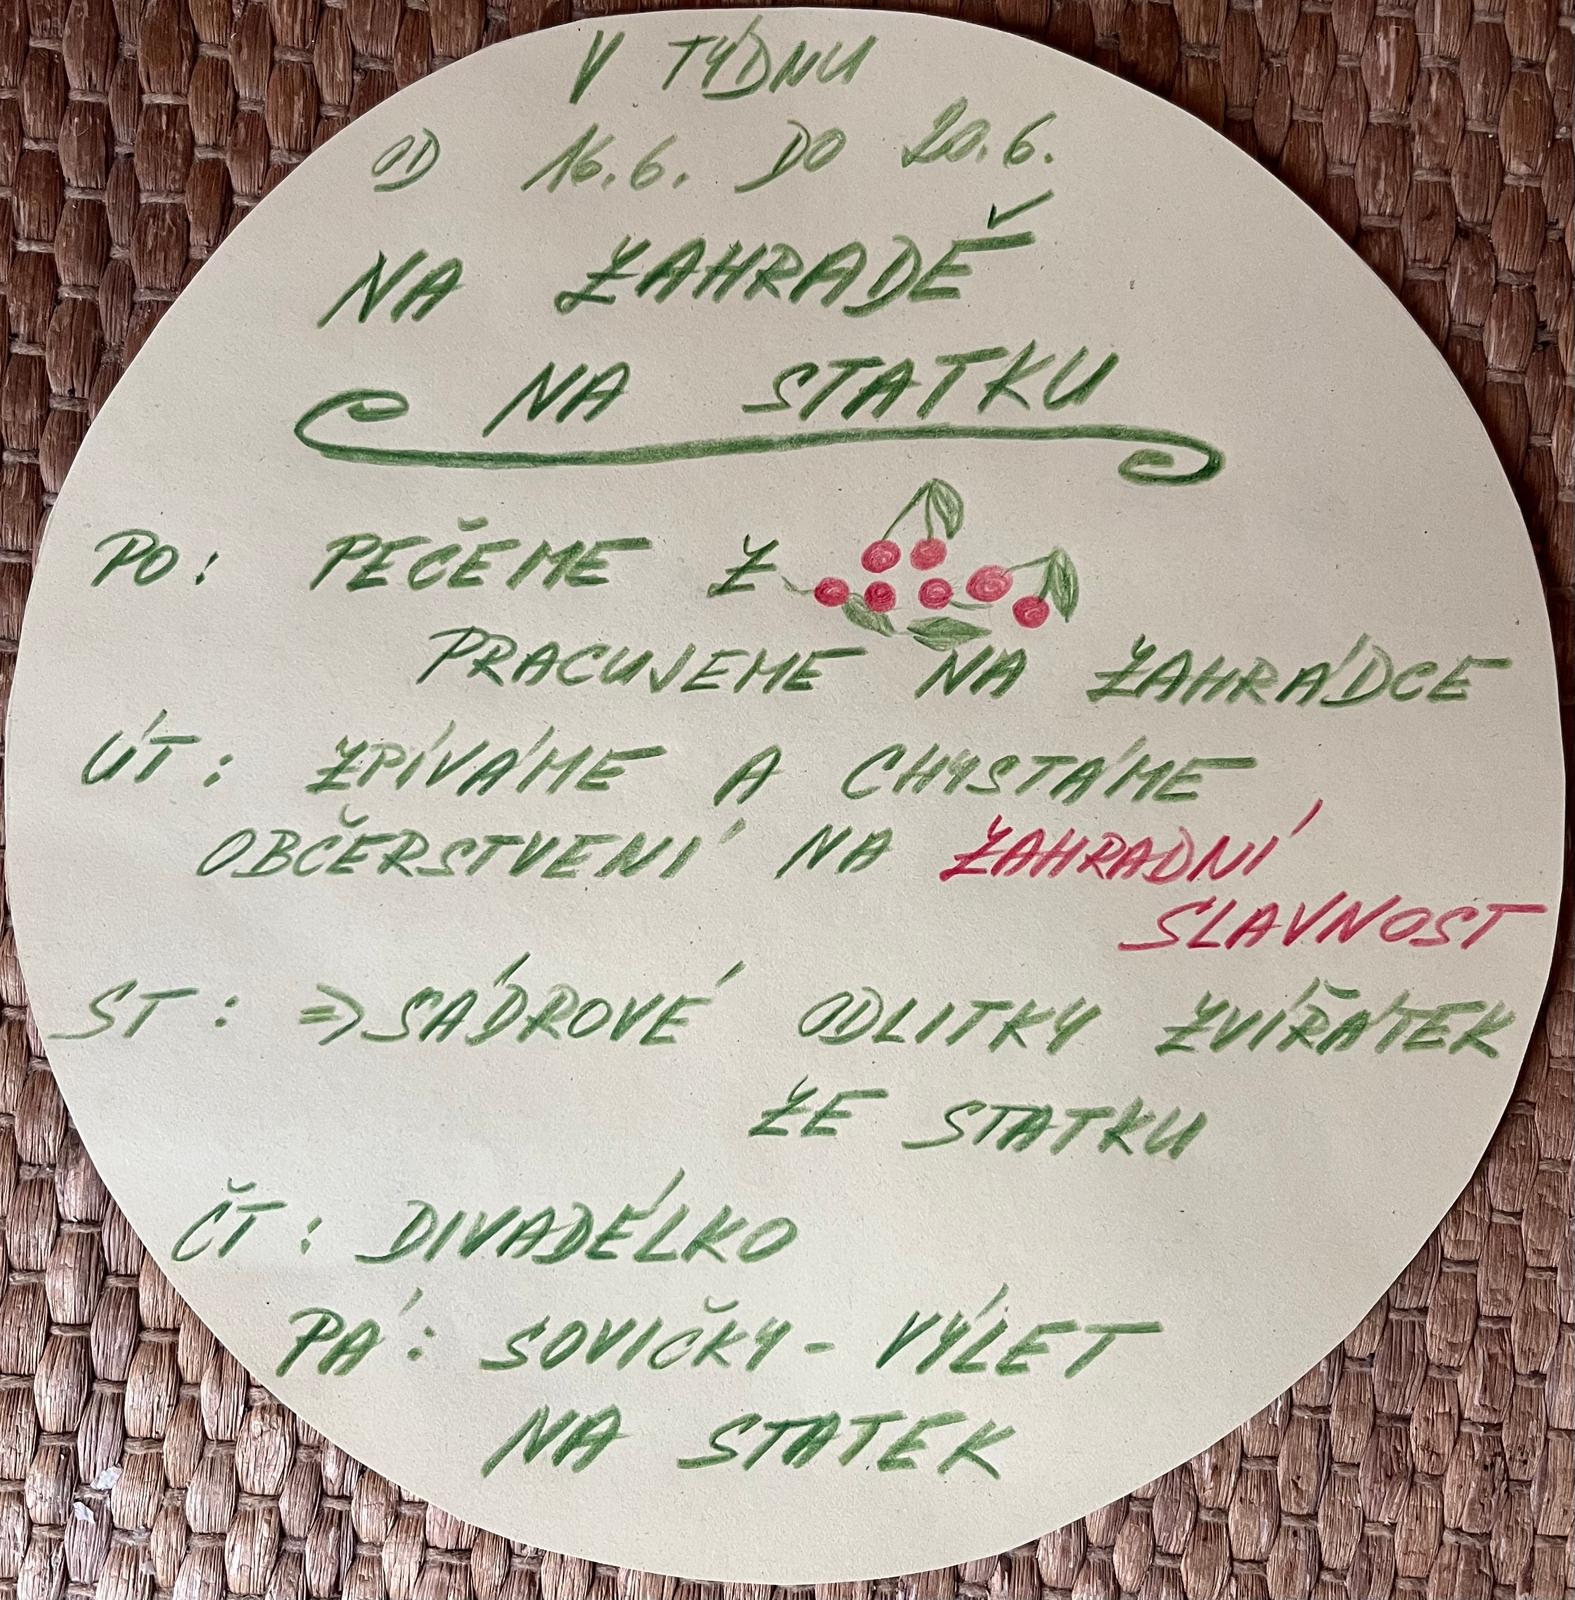 V TÝDNU
OD 16.6. DO 20.6.
NA ZAHRADĚ
NA STATKU
PO: PEČEME Z
PRACUJEME NA ZAHRÁDCE
ÚT: ZPÍVÁME A CHYSTÁME
OBČERSTVENÍ NA ZAHRADNÍ
SLAVNOST
ST: => SÁDROVÉ ODLITKY ZVÍŘÁTEK
ZE STATKU
ČT: DIVADÉLKO
PÁ: SOVIČKY - VÝLET
NA STATEK